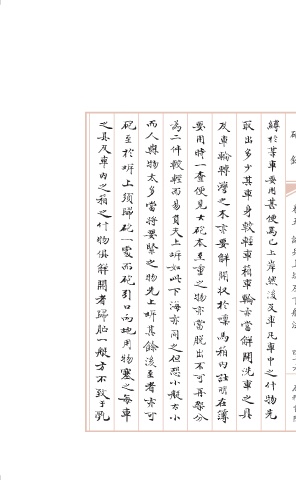 縛於某車要用甚便焉已上岸然後及車凡車中之什物先
取出多少其車身輕車箱車輪亦當解開洗車之具
及車輪轉灣之木亦要解開収於嘜馬箱內註明在簿
要用時一查便見大砲本至重之物亦當脫出不可再架分
為二件較輕而易負天上坼如此下海亦同之但恐小艇亦小
而人與物太多當將要緊之物先上坼其餘後至者亦可
砲至於坼上須歸砲一處而砲引口向地用物塞之每車
之具及車內之箱之什物俱解開者歸船一艇方不致于乳